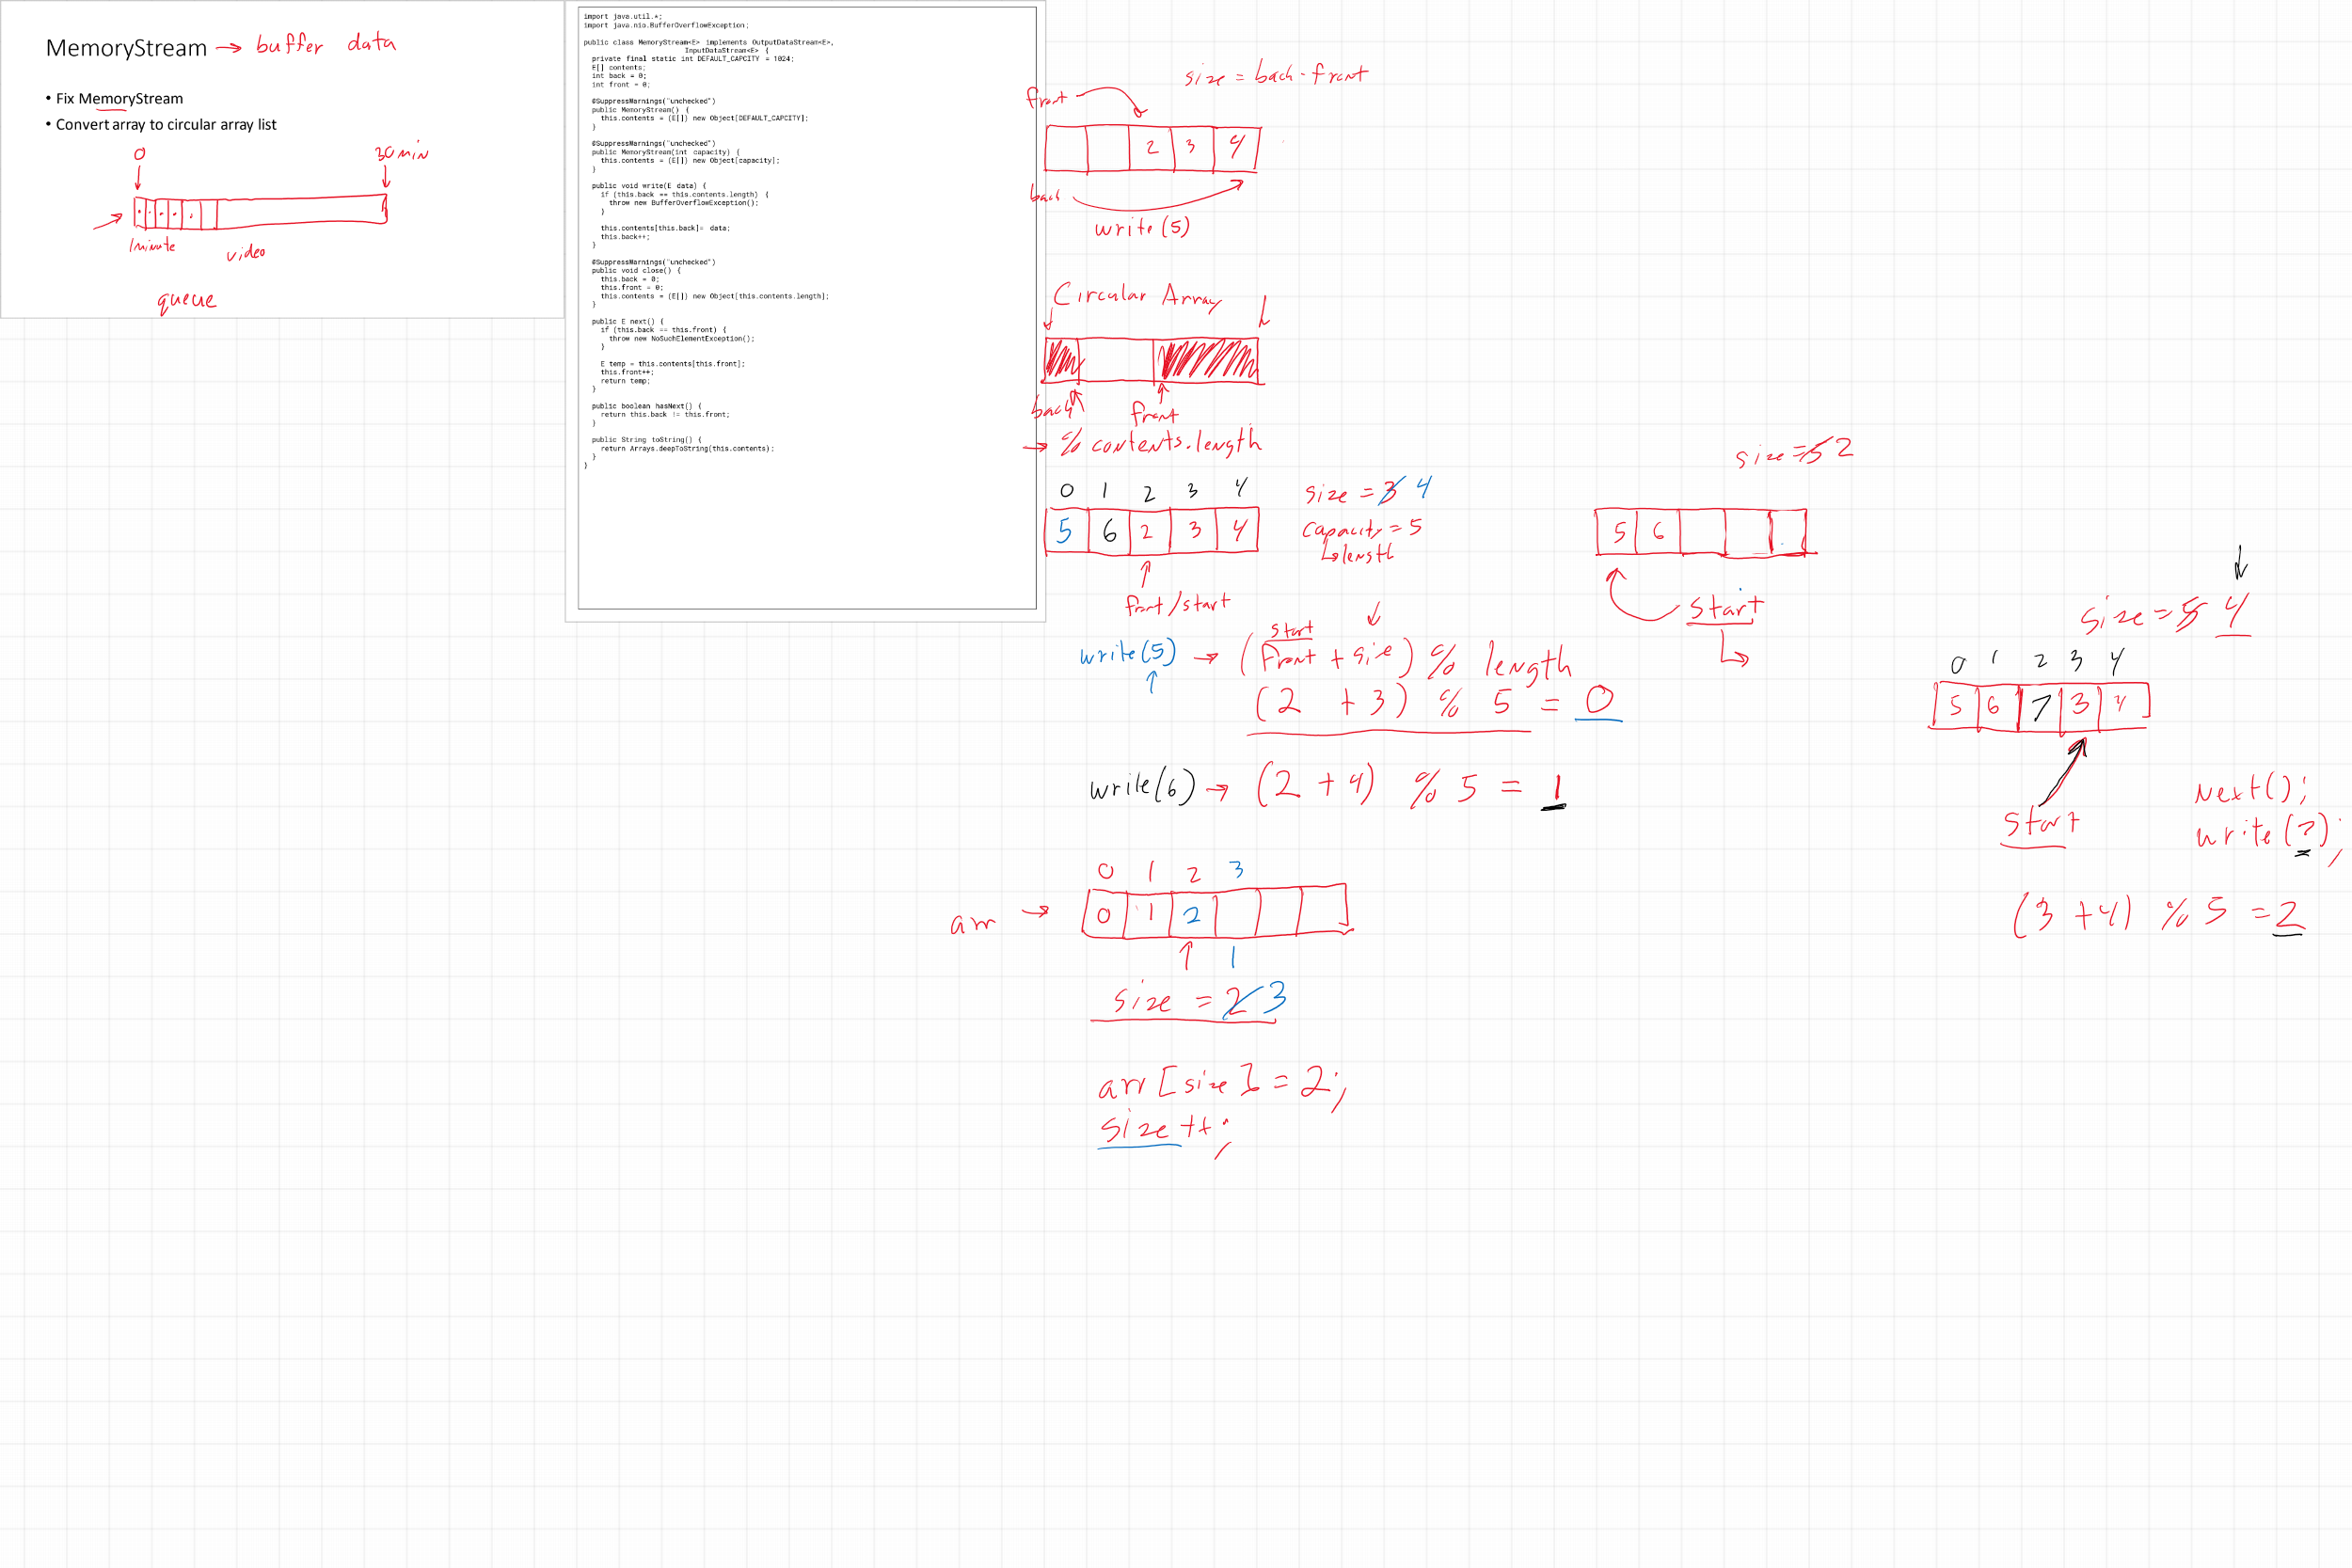 MemoryStream → buffer data
• Fix MemoryStream
• Convert array to circular array list
0 30 min
1minute
video
queue
import java.util.*;
import java.nio.BufferOverflowException;
public class MemoryStream<E> implements OutputDataStream<E>,
InputDataStream<E> {
private final static int DEFAULT_CAPCITY = 1024;
E[] contents;
int back = 0;
int front = 0;
@SuppressWarnings("unchecked")
public MemoryStream() {
this.contents = (E[]) new Object[DEFAULT_CAPCITY];
}
@SuppressWarnings("unchecked")
public MemoryStream(int capacity) {
this.contents = (E[]) new Object[capacity];
}
public void write(E data) {
if (this.back == this.contents.length) {
throw new BufferOverflowException();
}
this.contents[this.back]= data;
this.back++;
}
@SuppressWarnings("unchecked")
public void close() {
this.back = 0;
this.front = 0;
this.contents = (E[]) new Object[this.contents.length];
}
public E next() {
if (this.back == this.front) {
throw new NoSuchElementException();
}
E temp = this.contents[this.front];
this.front++;
return temp;
}
public boolean hasNext() {
return this.back != this.front;
}
public String toString() {
return Arrays.deepToString(this.contents);
}
}
size = back - front
front
2 3 4
back
write(5)
Circular Array
back front
→ % contents.length
0 1 2 3 4
5 6 2 3 4
size = 3 4
capacity = 5
↳length
front/start
write(5) → (front + size) % length
start
(2 + 3) % 5 = 0
write(6) → (2 + 4) % 5 = 1
0 1 2 3
arr → 0 1 2
1
size = 2 3
arr[size] = 2;
size++;
size = 5 2
5 6
start
size = 5 4
0 1 2 3 4
5 6 7 3 4
start
next();
write(7);
(3 + 4) % 5 = 2